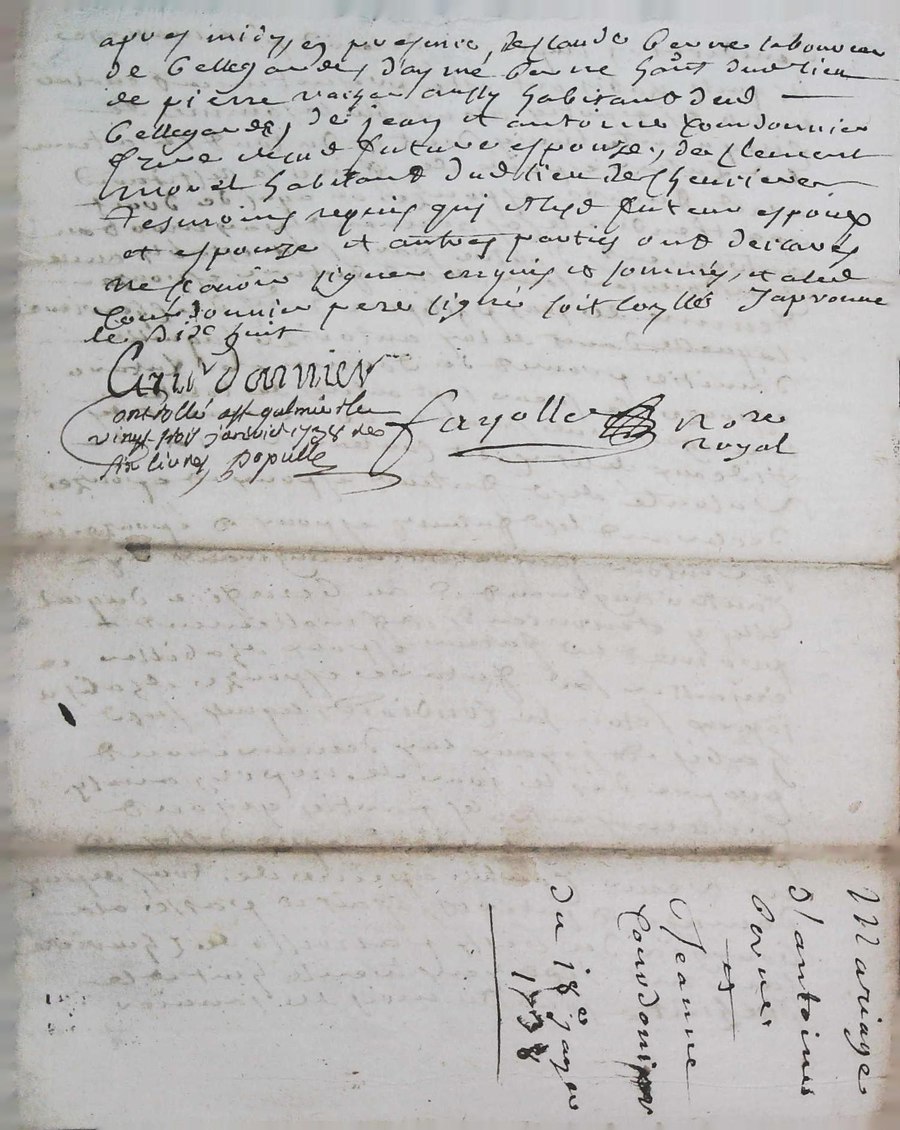 apres midy, en presence, de claude berne laboureur
de bellegarde, d'aymé berne habt dud lieu
de pierre aussy habitant dud
bellegarde, de jean et antoine Courdonnier
frere de lad future espouze, de Clement
habitant dud lieu de Chevrieres
tesmoins requis qui et lesd futeur espoux
et espouze et autres parties ont declarés
ne scavoir signer enquis et sommés, et a led
Courdonnier pere signé soit
le dixe huit
Courdannier
Controllé a St galmier le
vingt trois janvier 1738 reç
six livres Populle
fayolle Nore
royal
Mariage
d'antoine
berne
&
Jeanne
Courdonnier
du 18e janv
1738